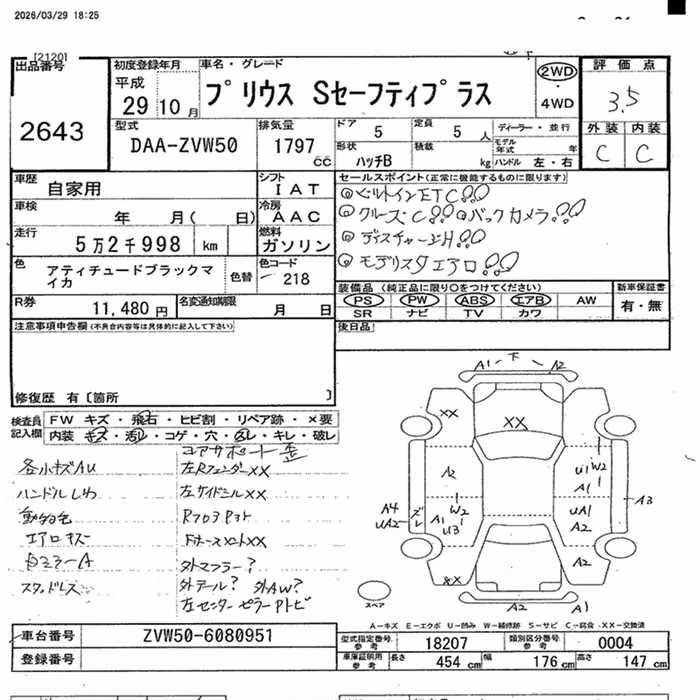 2026/03/29 18:25
[2120]
出品番号
2643
初度登録年月
平成
29 10 月
車名・グレード
プリウス Sセーフティプラス
2WD
4WD
評価点
3.5
外装 内装
C C
型式
DAA-ZVW50
排気量
1797 cc
ドア 5
定員 5 人
形状 ハッチB
積載 kg
ディーラー・並行
モデル年式 年
ハンドル 左・右
車歴 自家用
シフト IAT
車検 年 月( 日)
冷房 AAC
走行 5万2千998 km
燃料 ガソリン
色 アティチュードブラックマイカ
色替
色コード 218
R券 11,480 円
名変通知期限 月 日
セールスポイント(正常に機能するものに限ります)
◎ビルトインETC
◎クルーズ・C ◎バックカメラ
◎ディスチャージH
◎モデリスタエアロ
装備品 (純正品に限り○をつけてください)
PS PW ABS エアB AW
SR ナビ TV カワ
新車保証書
有・無
後日品
注意事項申告欄(不具合内容等は具体的に記入して下さい)
修復歴 有〔箇所 〕
検査員記入欄
FW キズ・飛石・ヒビ割・リペア跡・×要
内装 キズ・汚れ・コゲ・穴・スレ・キレ・破レ
コアサポート歪
各小キズAU
左RフェンダーXX
ハンドルしわ
左サイドシルXX
エアロキズ
外マフラー?
スタッドレス
外テール? 外AW?
左センターピラーアトビ
A1 下 A2
XX
XX
A2
U1 W2
A1
A4
UA2
ズレ
W2
A1
U3
UA1
A2
A3
XX
A2
A2 A1
スペア
A-キズ E-エクボ U-凹み W-補修跡 S-サビ C-腐食 XX-交換済
車台番号 ZVW50-6080951
登録番号
型式指定番号 参考 18207
類別区分番号 参考 0004
車庫証明用 参考 長さ 454 cm 幅 176 cm 高さ 147 cm